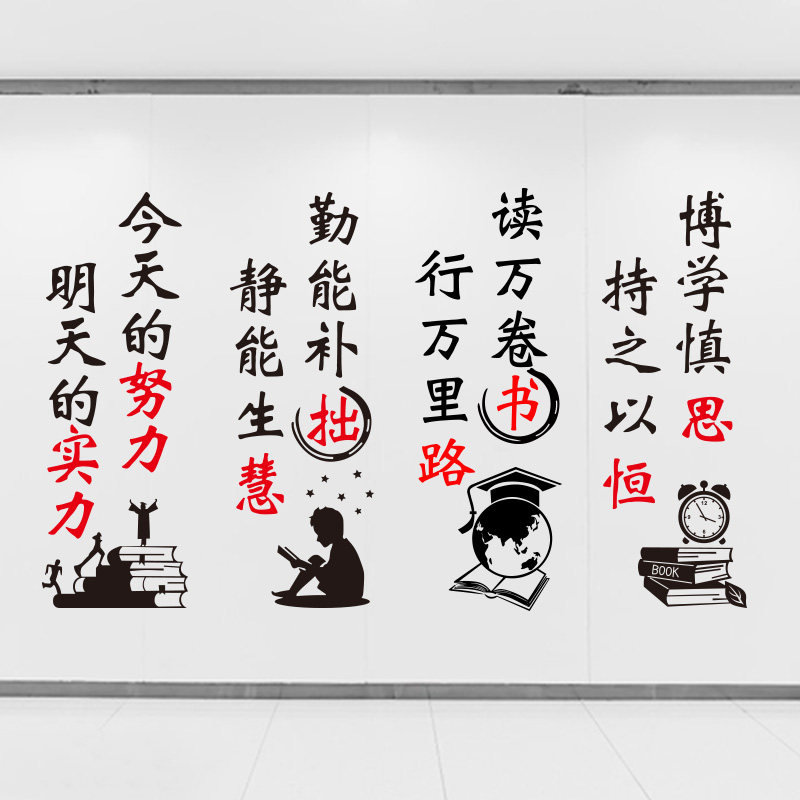 今天的努力
明天的实力
勤能补拙
静能生慧
读万卷书
行万里路
博学慎思
持之以恒
12
9 3
6
BOOK